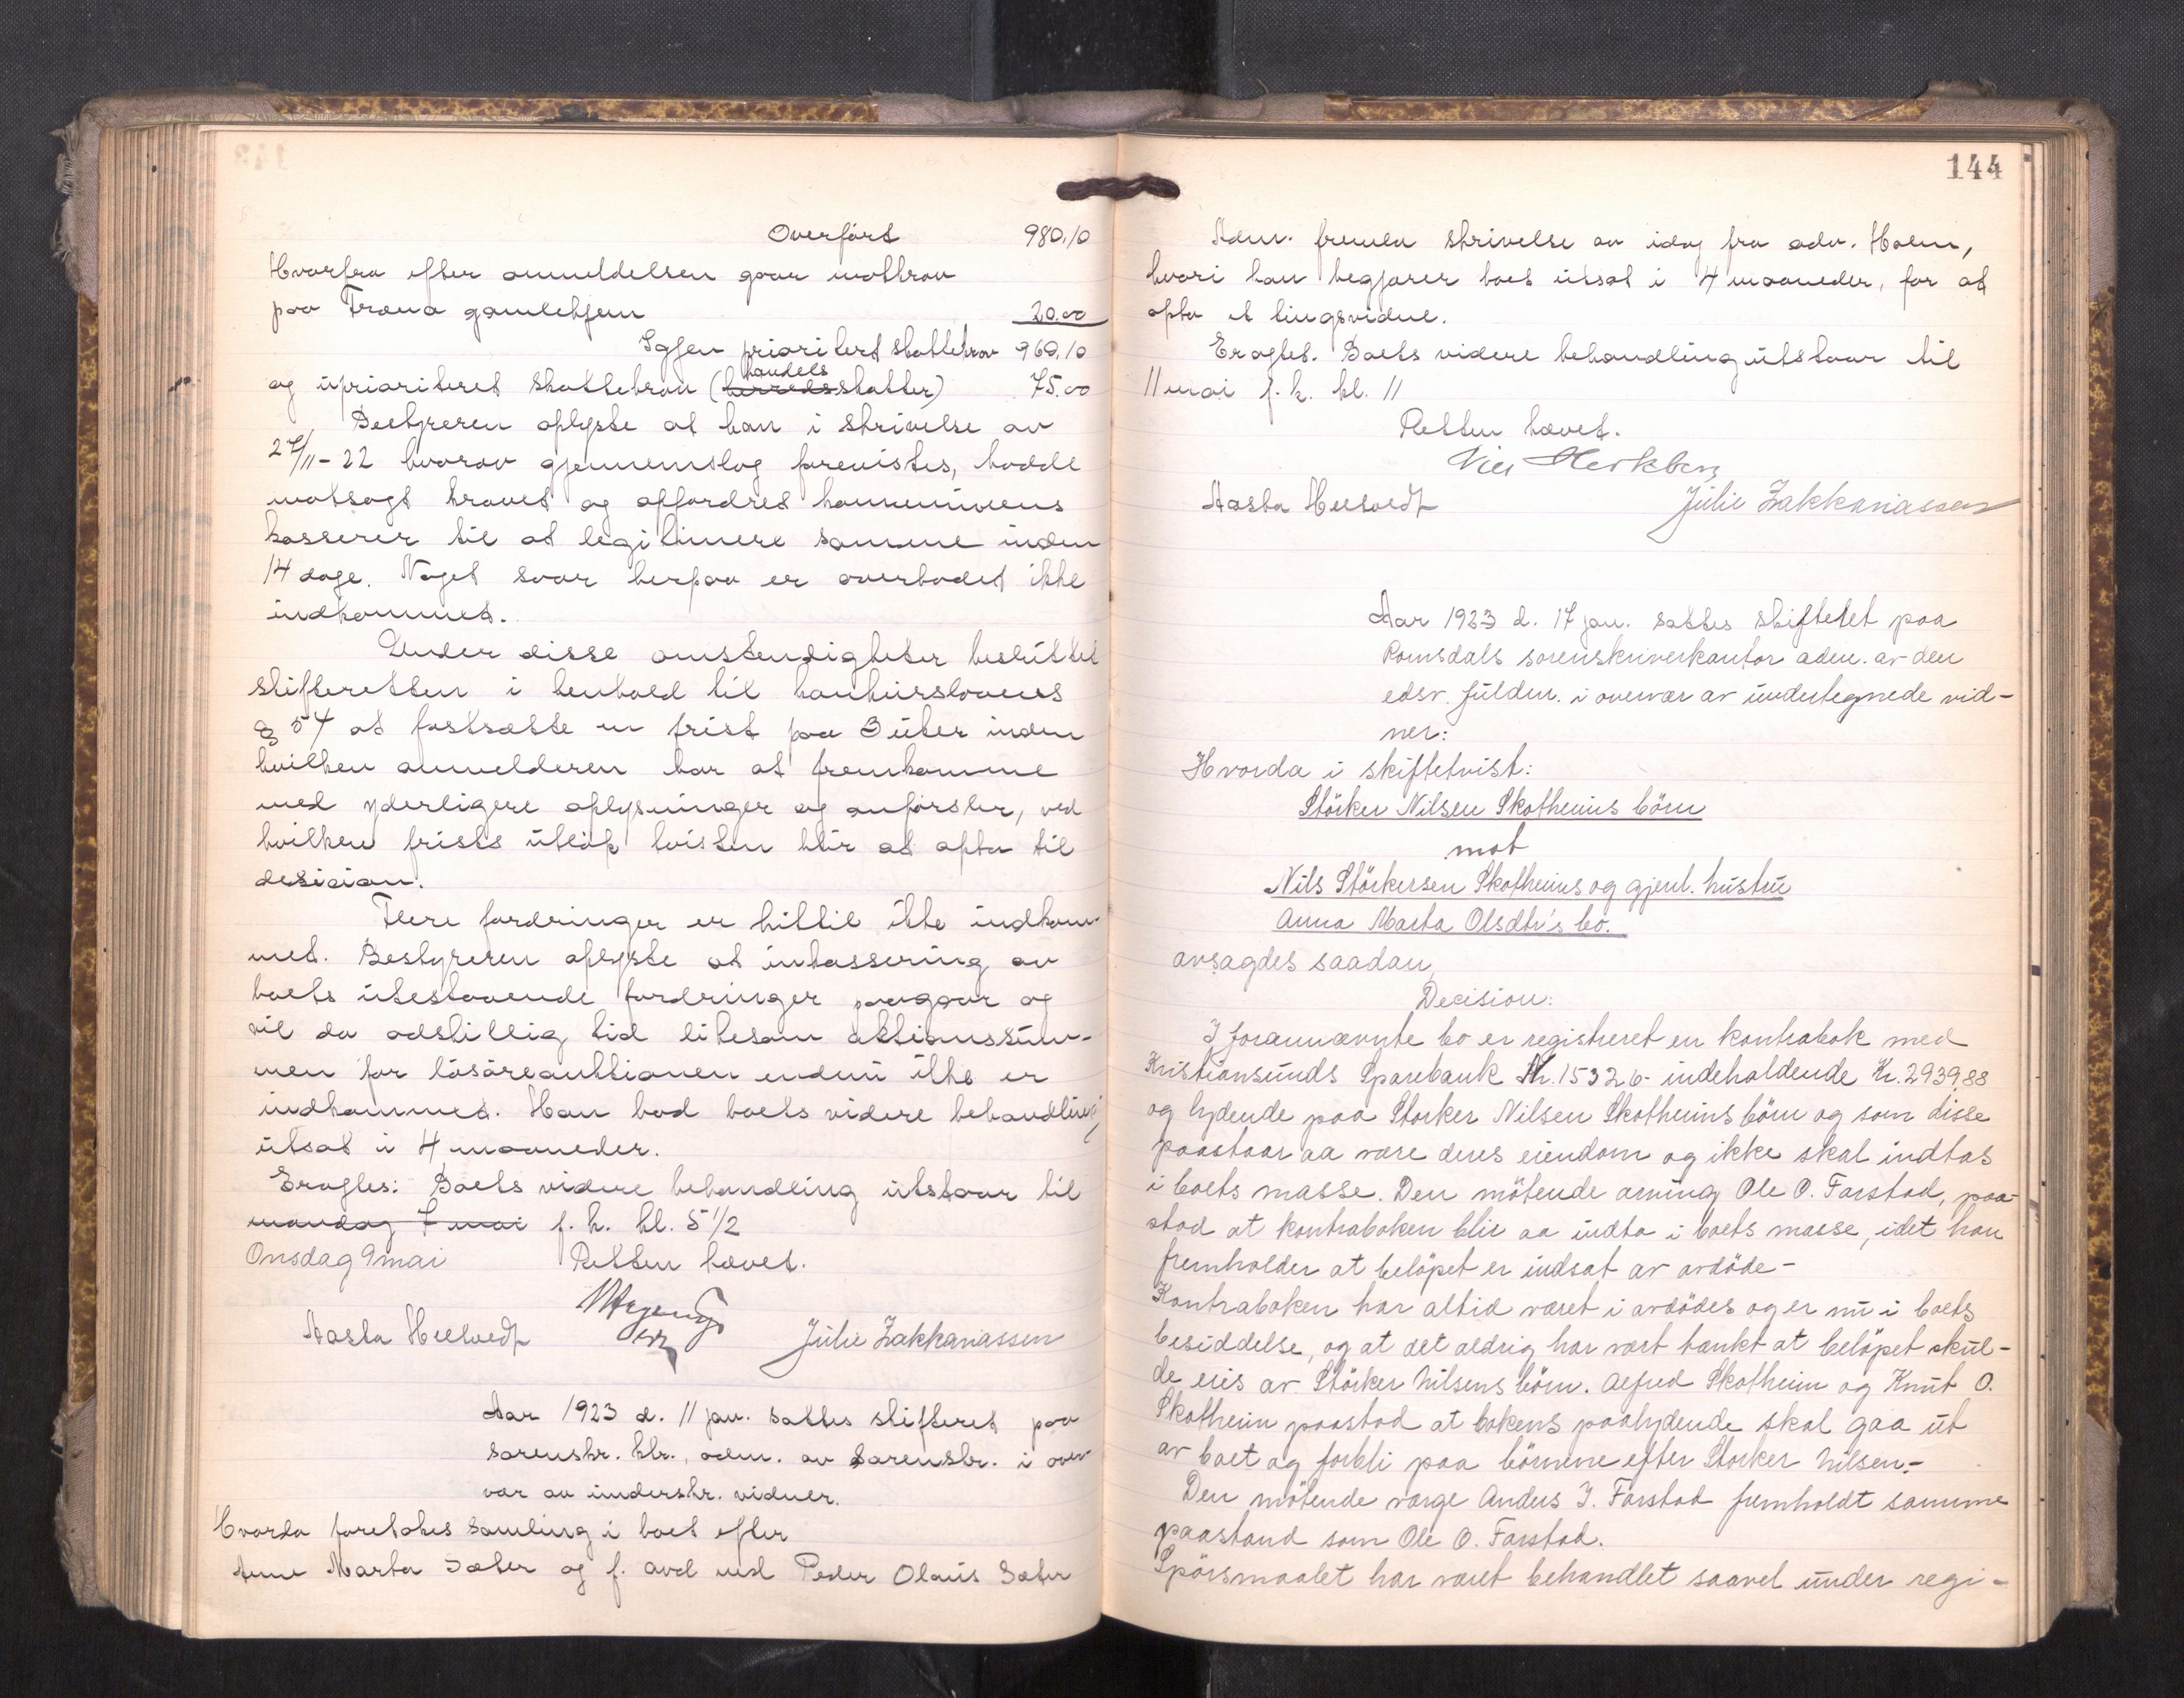 Overført 980.10
Hvorfra efter anmeldelsen gaar motkrav
paa Fræna gamlehjem 20.00
Igjen prioritert skattekrav 960.10
og uprioriteret skattekrav (herreds handels skatter) 75.00
Bestyreren oplyste at han i skrivelse av
27/11-22 hvorav gjennemslag forevistes, hadde
motsagt kravet og opfordret kommunens
kasserer til at legitimere samme inden
14 dage. Noget svar herpaa er overhodet ikke
indkommet.
Under disse omstendigheter besluttet
skifteretten i henhold til konkurslovens
§ 54 at fastsætte en frist paa 3 uker inden
hvilken anmelderen har at fremkomme
med yderligere oplysninger og anførsler, ved
hvilken frists utløp tvisten blir at opta til
desision.
Flere fordringer er hittil ikke indkom-
met. Bestyreren oplyste at inkassering av
boets utestaaende fordringer paagaar og
vil da adskillig tid likesom auktionssum-
men for løsøreauktionen endnu ikke er
indkommet. Han bad boets videre behandling
utsat i 4 maaneder.
Eragtes: Boets videre behandling utstaar til
mandag 7 mai f. k. kl. 5 1/2
Onsdag 9 mai Retten hævet.
Aasta Julie Zakkariassen
Aar 1923 d. 11 jan. sattes skifteret paa
sorenskr. ktr., adm. av sorenskr. i over-
vær av underskr. vidner.
Hvorda foretokes samling i boet efter
Anne Marta Sæter og f. avd md Peder Olaus Sæter
144
Adm. fremla skrivelse av idag fra adv. Holm,
hvori han begjærer boet utsat i 4 maaneder, for at
opta et tingsvidne.
Eragtet. Boets videre behandling utstaar til
11 mai f. k. kl. 11
Retten hævet.
Aasta Julie Zakkariassen
Aar 1923 d. 17 jan. sattes skifteret paa
Romsdals sorenskriverkontor adm. av den
edsv. fuldm. i overvær av undertegnede vid-
ner:
Hvorda i skiftetvist:
Störker Nilsen Skotheims börn
mot
Nils Störkersen Skotheims og gjenl. hustru
Anna Marta Olsdtr's bo.
avsagdes saadan
Decision:
I forannævnte bo er registreret en kontrabok med
Kristiansunds Sparebank Nr. 15326 - indeholdende Kr. 2939,88
og lydende paa Storker Nilsen Skotheims börn og som disse
paastaar aa være deres eiendom og ikke skal indtas
i boets masse. Den mötende arving Ole O. Farstad, paa-
stod at kontraboken blir aa indta i boets masse, idet han
fremholder at belöpet er indsat av avdöde -
Kontraboken har altid været i avdödes og er nu i boets
besiddelse, og at det aldrig har vært tænkt at belöpet skul-
de eies av Störker Nilsens börn. Alfred Skotheim og Knut O.
Skotheim paastod at bokens paalydende skal gaa ut
av boet og forbli paa börnene efter Storker Nilsen.-
Den mötende verge Anders J. Farstad fremholdt samme
paastand som Ole O. Farstad.
Spörsmaalet har været behandlet saavel under regi-